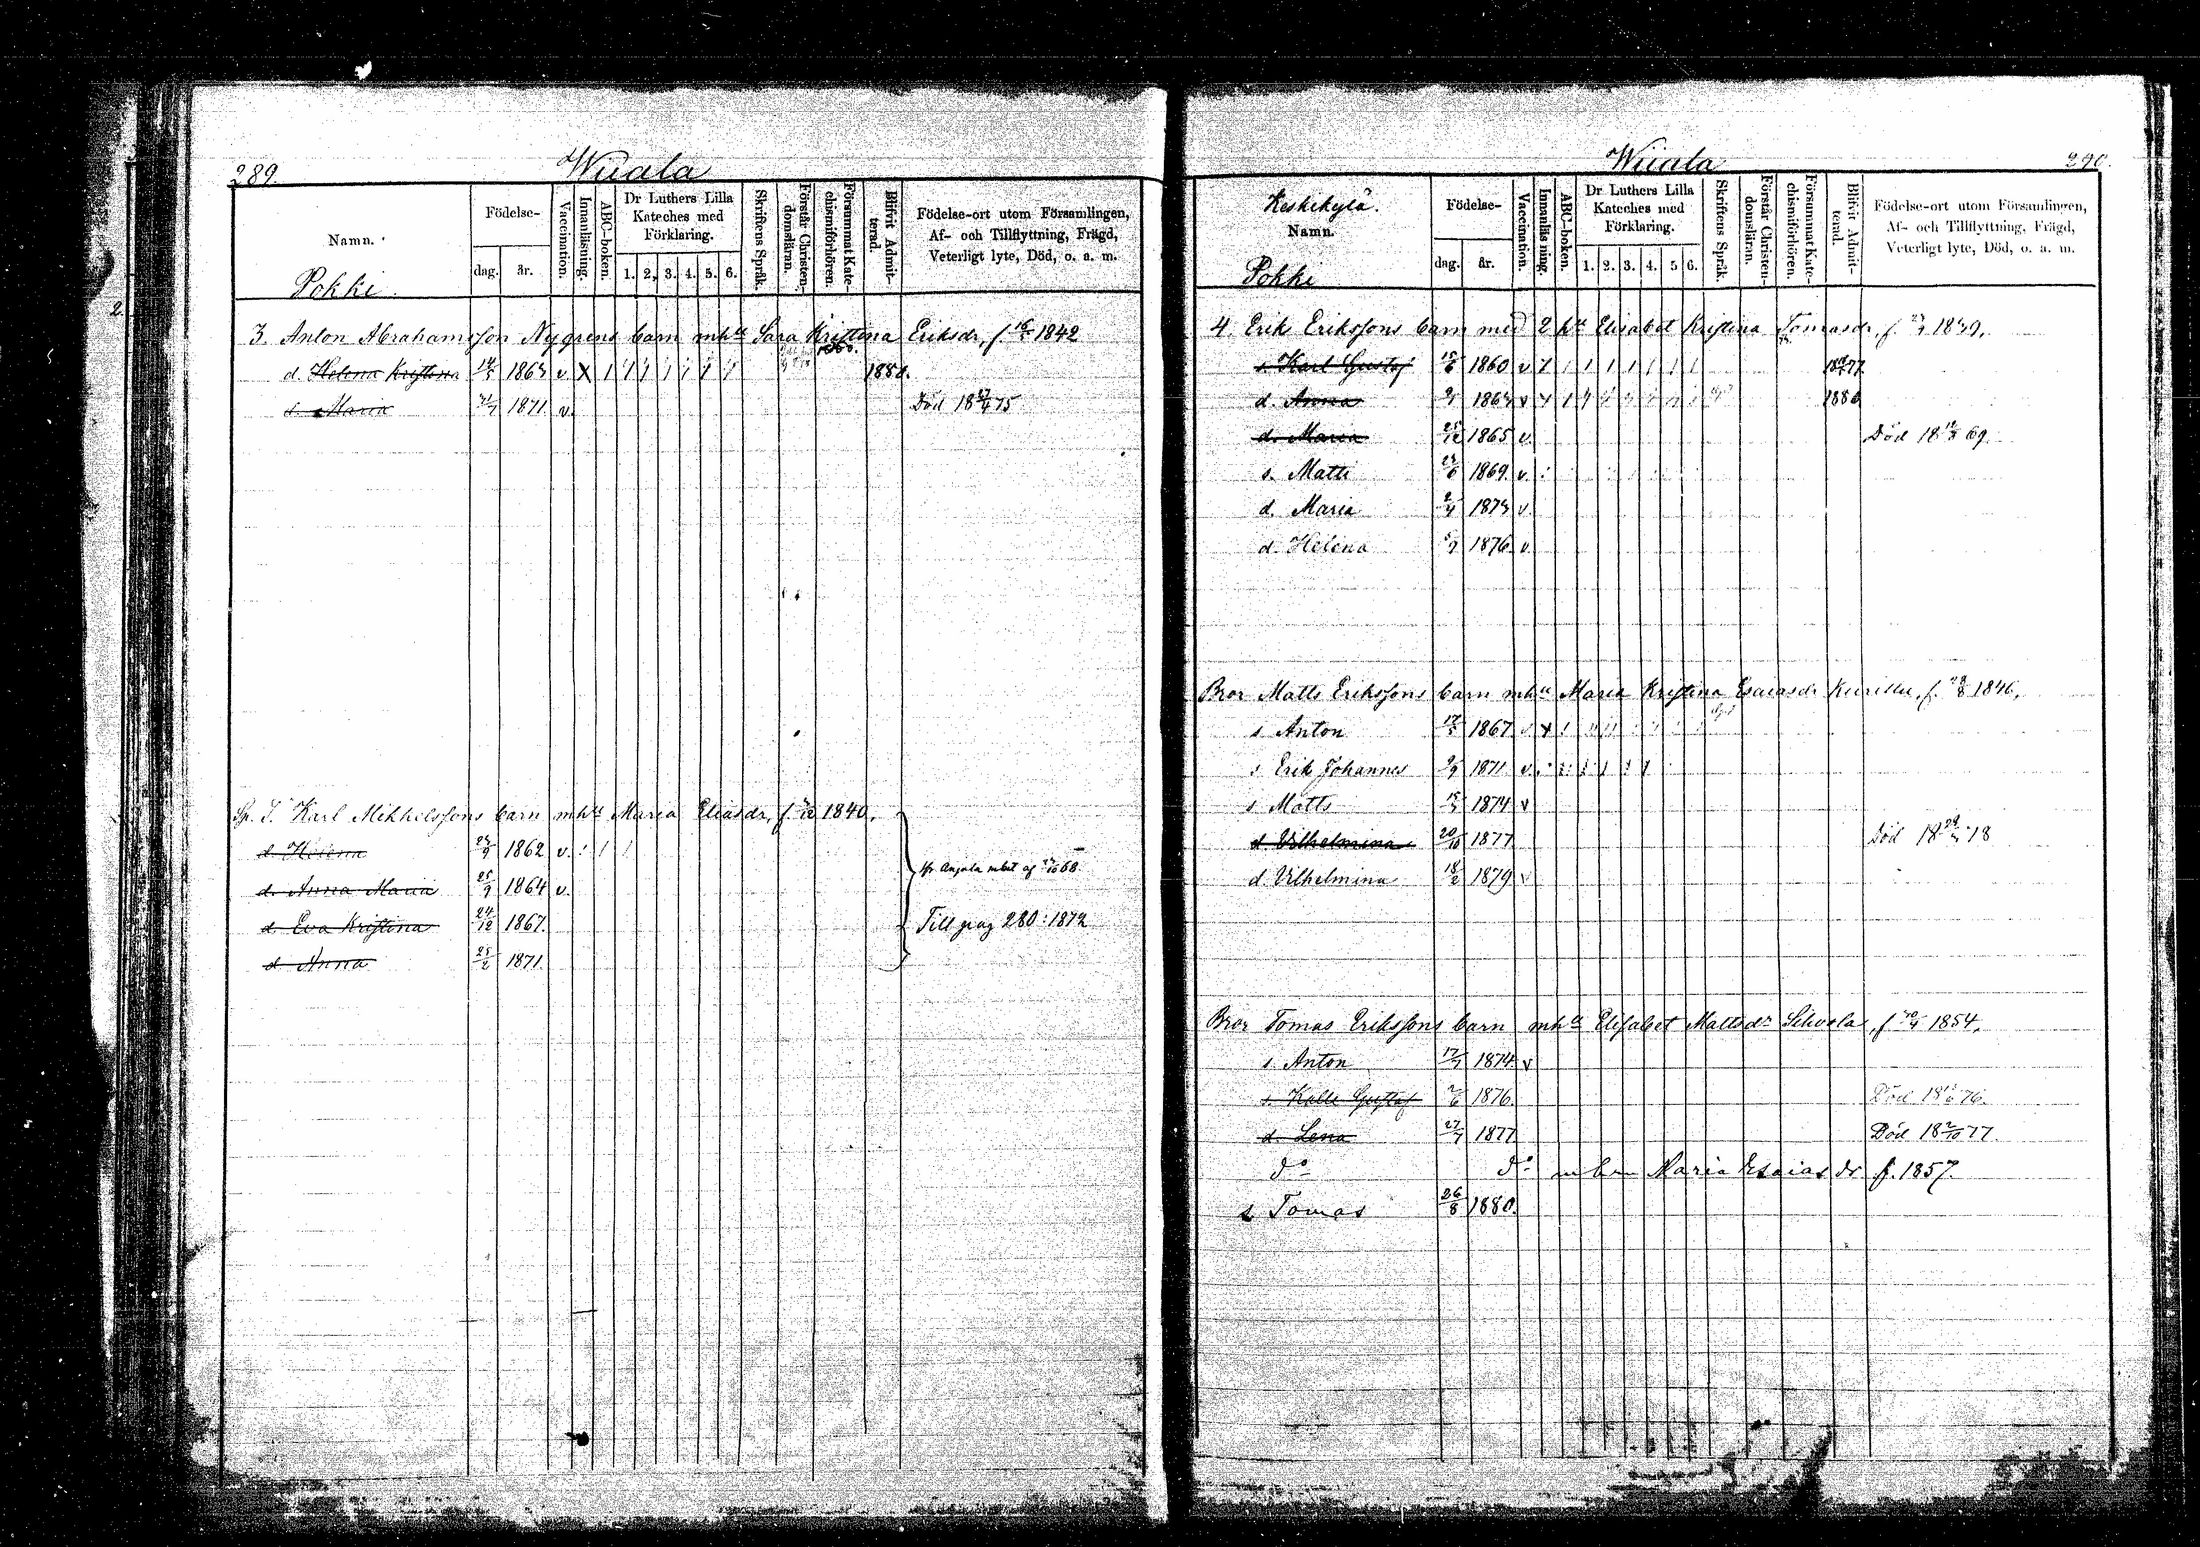 289.
Wiiala
Namn.
Födelse-
dag.
år.
Vaccination.
Innanläsning.
ABC-boken.
Dr Luthers Lilla
Kateches med
Förklaring.
1. 2. 3. 4. 5. 6.
Skriftens Språk.
Förstår Christen-
domsläran.
Försummat Kate-
chismiförhören.
Blifvit Admit-
terad.
Födelse-ort utom Församlingen,
Af- och Tillflyttning, Frägd,
Veterligt lyte, Död, o. a. m.
Pokki
3. Anton Abrahamsson Nygrens barn mhu Sara Kristina Eriksdr, f. 1842
d. Helena Kristina 1863 v. X 1880.
s. Maria 1871 v. Död 18 27/4 75
Karl Mikkelssons barn mhu Maria Eliasdr, f. 1840.
d. Helena 1862 v.
d. Anna Maria 25/9 1864 v.
d. Eva Kristina 24/12 1867.
d. Anna 25/2 1871.
Till pag 280: 1872
Wiiala
290.
Keskikylä.
Namn.
Födelse-
dag.
år.
Vaccination.
Innanläsning.
ABC-boken.
Dr Luthers Lilla
Kateches med
Förklaring.
1. 2. 3. 4. 5 6.
Skriftens Språk.
Förstår Christen-
domsläran.
Försummat Kate-
chismiförhören.
Blifvit Admit-
terad.
Födelse-ort utom Församlingen,
Af- och Tillflyttning, Frägd,
Veterligt lyte, Död, o. a. m.
Pokki
4. Erik Erikssons barn med 2 hu Elisabet Kristina Tomasdr, f. 1839.
s. Karl Gustaf 1860 v
d. Anna 1863 v 1880
d. Maria 25/12 1865 v. Död 69
s. Matti 1869. v.
d. Maria 2/4 1873 v.
d. Helena 1876 v
Bror Matts Erikssons barn mhu Maria Kristina Esaiasdr f. 1846.
s. Anton 17/5 1867
s. Erik Johannes 1871 v.
s Matts 1874 v
d. Vilhelmina 20/10 1877 Död
d. Vilhelmina 18/2 1879 v
Bror Tomas Erikssons barn mhu Elisabet Mattsdr f. 1854.
s. Anton 17/7 1874. v
s. Kalle Gustaf 1876. Död 76.
d. Lena 27/7 1877 Död 18 2/10 77.
do do Maria Esaias dr f. 1857.
s. Tomas 26/8 1880.